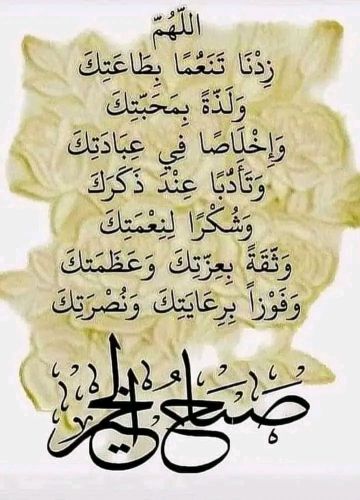 اللّهُمّ
زِدْنَا تَنَعُّمًا بِطَاعَتِكَ
وَلَذّةً بِمَحَبّتِكَ
وَإِخْلَاصًا فِي عِبَادَتِكَ
وَتَأَدُّبًا عِنْدَ ذَكَرَكَ
وَشُكْرًا لِنِعْمَتِكَ
وَثّقَةً بِعِزّتِكَ وَعَظَمَتكَ
وَفَوْزاً بِرِعَايَتِكَ وَنُصْرَتِكَ
صَبَاحُ الخَيْرِ